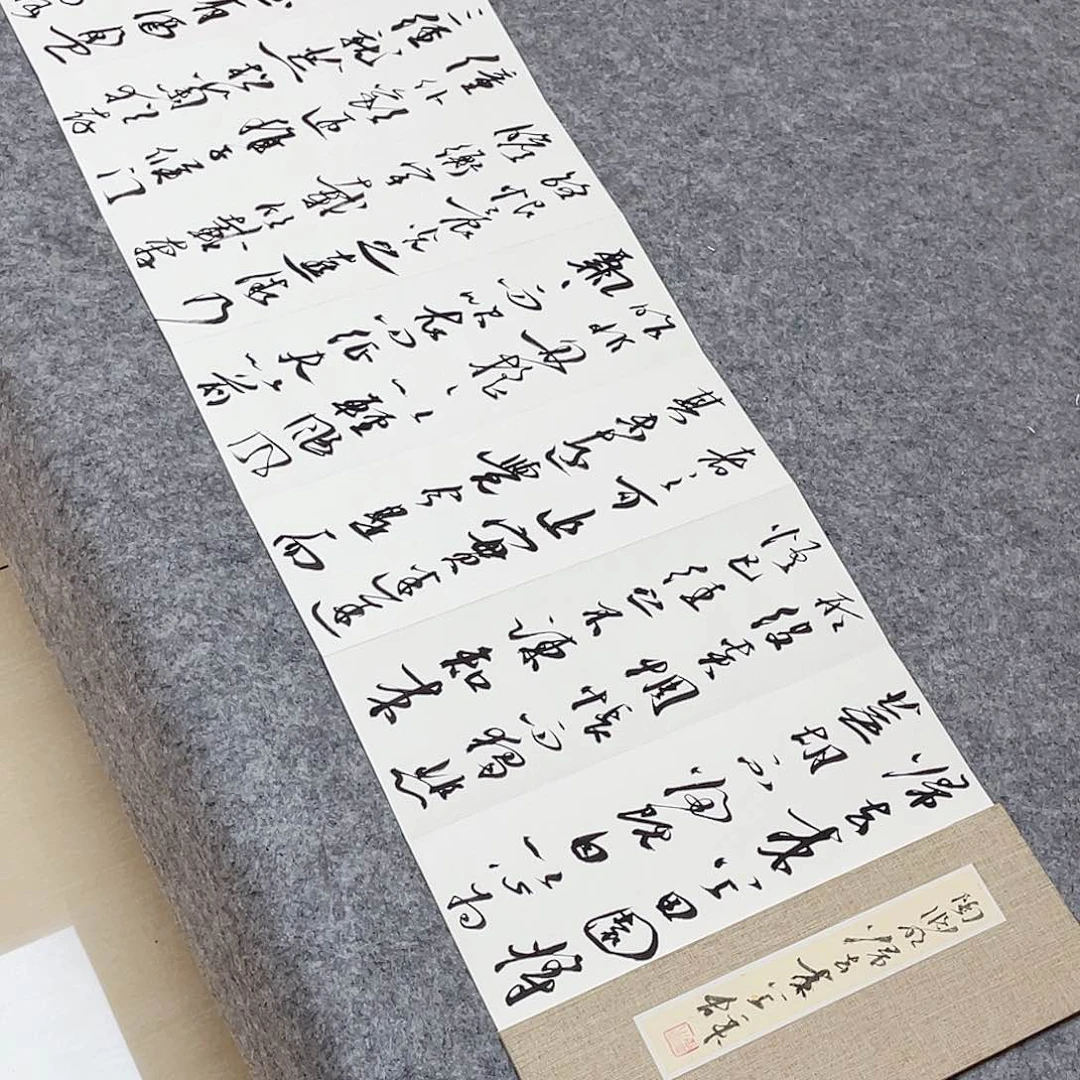 陶淵明歸去來兮辭
歸去來兮田園將
蕪胡不歸既自以心為
形役奚惆悵而獨悲
悟已往之不諫知來
者之可追實迷途
其未遠覺今是而
昨非舟搖搖以輕颺風
飄飄而吹衣問征夫以前
路恨晨光之熹微乃
瞻衡宇載欣載奔
僮仆歡迎稚子候門
三徑就荒松菊猶存
有酒盈